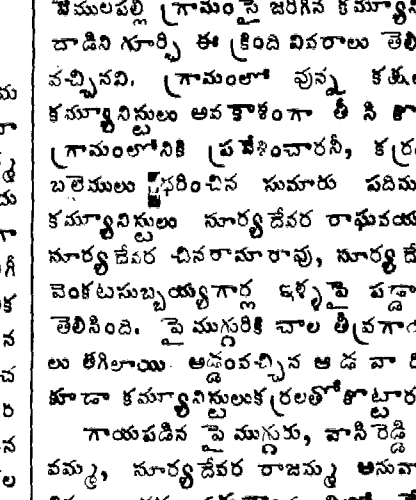 వేములపల్లి గ్రామం పై జరిగిన కమ్యూని
దాడిని గూర్చి ఈ క్రింది వివరాలు తెలి
వచ్చినవి. గ్రామంలో వున్న కతు
కమ్యూనిస్టులు అవకాశంగా తీ సి కొ
గ్రామంలోనికి ప్రవేశించారనీ, కర్ర
బల్లెములు ధరించిన సుమారు పదిమ
కమ్యూనిస్టులు సూర్యదేవర రాఘవయ
సూర్యదేవర చినరామారావు, సూర్య దే
వెంకటసుబ్బయ్యగార్ల ఇళ్ళపై పడ్డా
తెలిసింది. పై ముగ్గురికి చాల తీవ్రగా
లు తగిలాయి. అడ్డంవచ్చిన ఆ డ వా రి
కూడా కమ్యూనిస్టులుకర్రలతోకొట్టార
గాయపడిన పై ముగ్గురు, వాసిరెడ్డి
వమ్మ, సూర్యదేవర రాజమ్మ అనువా